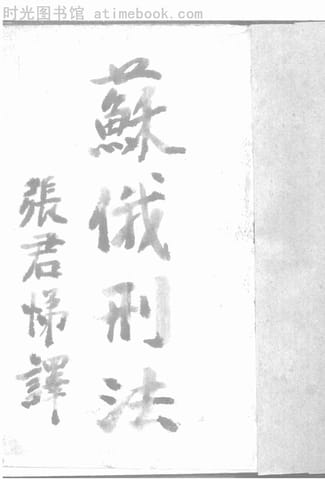 时光图书馆 atimebook.com
蘇俄刑法
張君悌譯